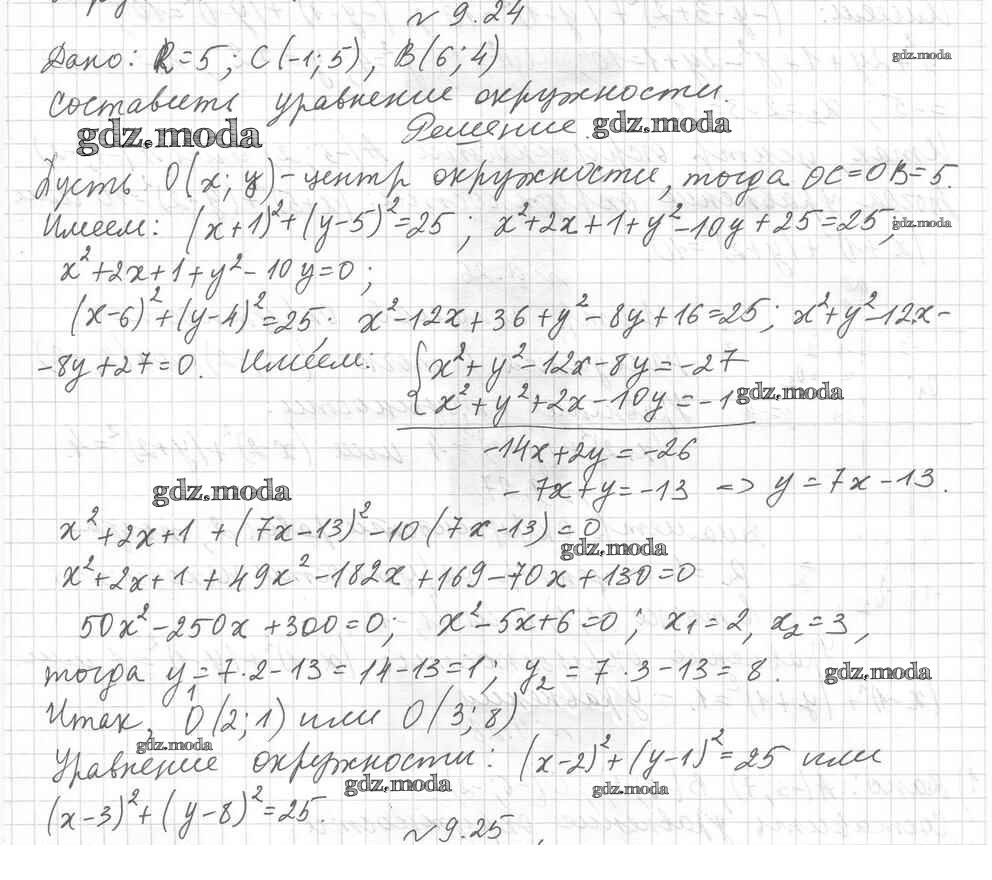 № 9.24
Дано: R=5; C(-1;5), B(6;4) gdz.moda
Составить уравнение окружности.
gdz.moda Решение gdz.moda
Пусть O(x; y) - центр окружности, тогда OC=OB=5.
Имеем: (x+1)²+(y-5)²=25; x²+2x+1+y²-10y+25=25; gdz.moda
x²+2x+1+y²-10y=0;
(x-6)²+(y-4)²=25. x²-12x+36+y²-8y+16=25; x²+y²-12x-
-8y+27=0. Имеем: { x²+y²-12x-8y=-27
x²+y²+2x-10y=-1 gdz.moda
-14x+2y=-26
gdz.moda -7x+y=-13 => y=7x-13.
x²+2x+1+(7x-13)²-10(7x-13)=0
gdz.moda
x²+2x+1+49x²-182x+169-70x+130=0
50x²-250x+300=0; x²-5x+6=0; x₁=2, x₂=3,
тогда y₁=7·2-13=14-13=1; y₂=7·3-13=8. gdz.moda
Итак, O(2;1) или O(3;8)
gdz.moda
Уравнение окружности: (x-2)²+(y-1)²=25 или
gdz.moda gdz.moda
(x-3)²+(y-8)²=25.
№ 9.25